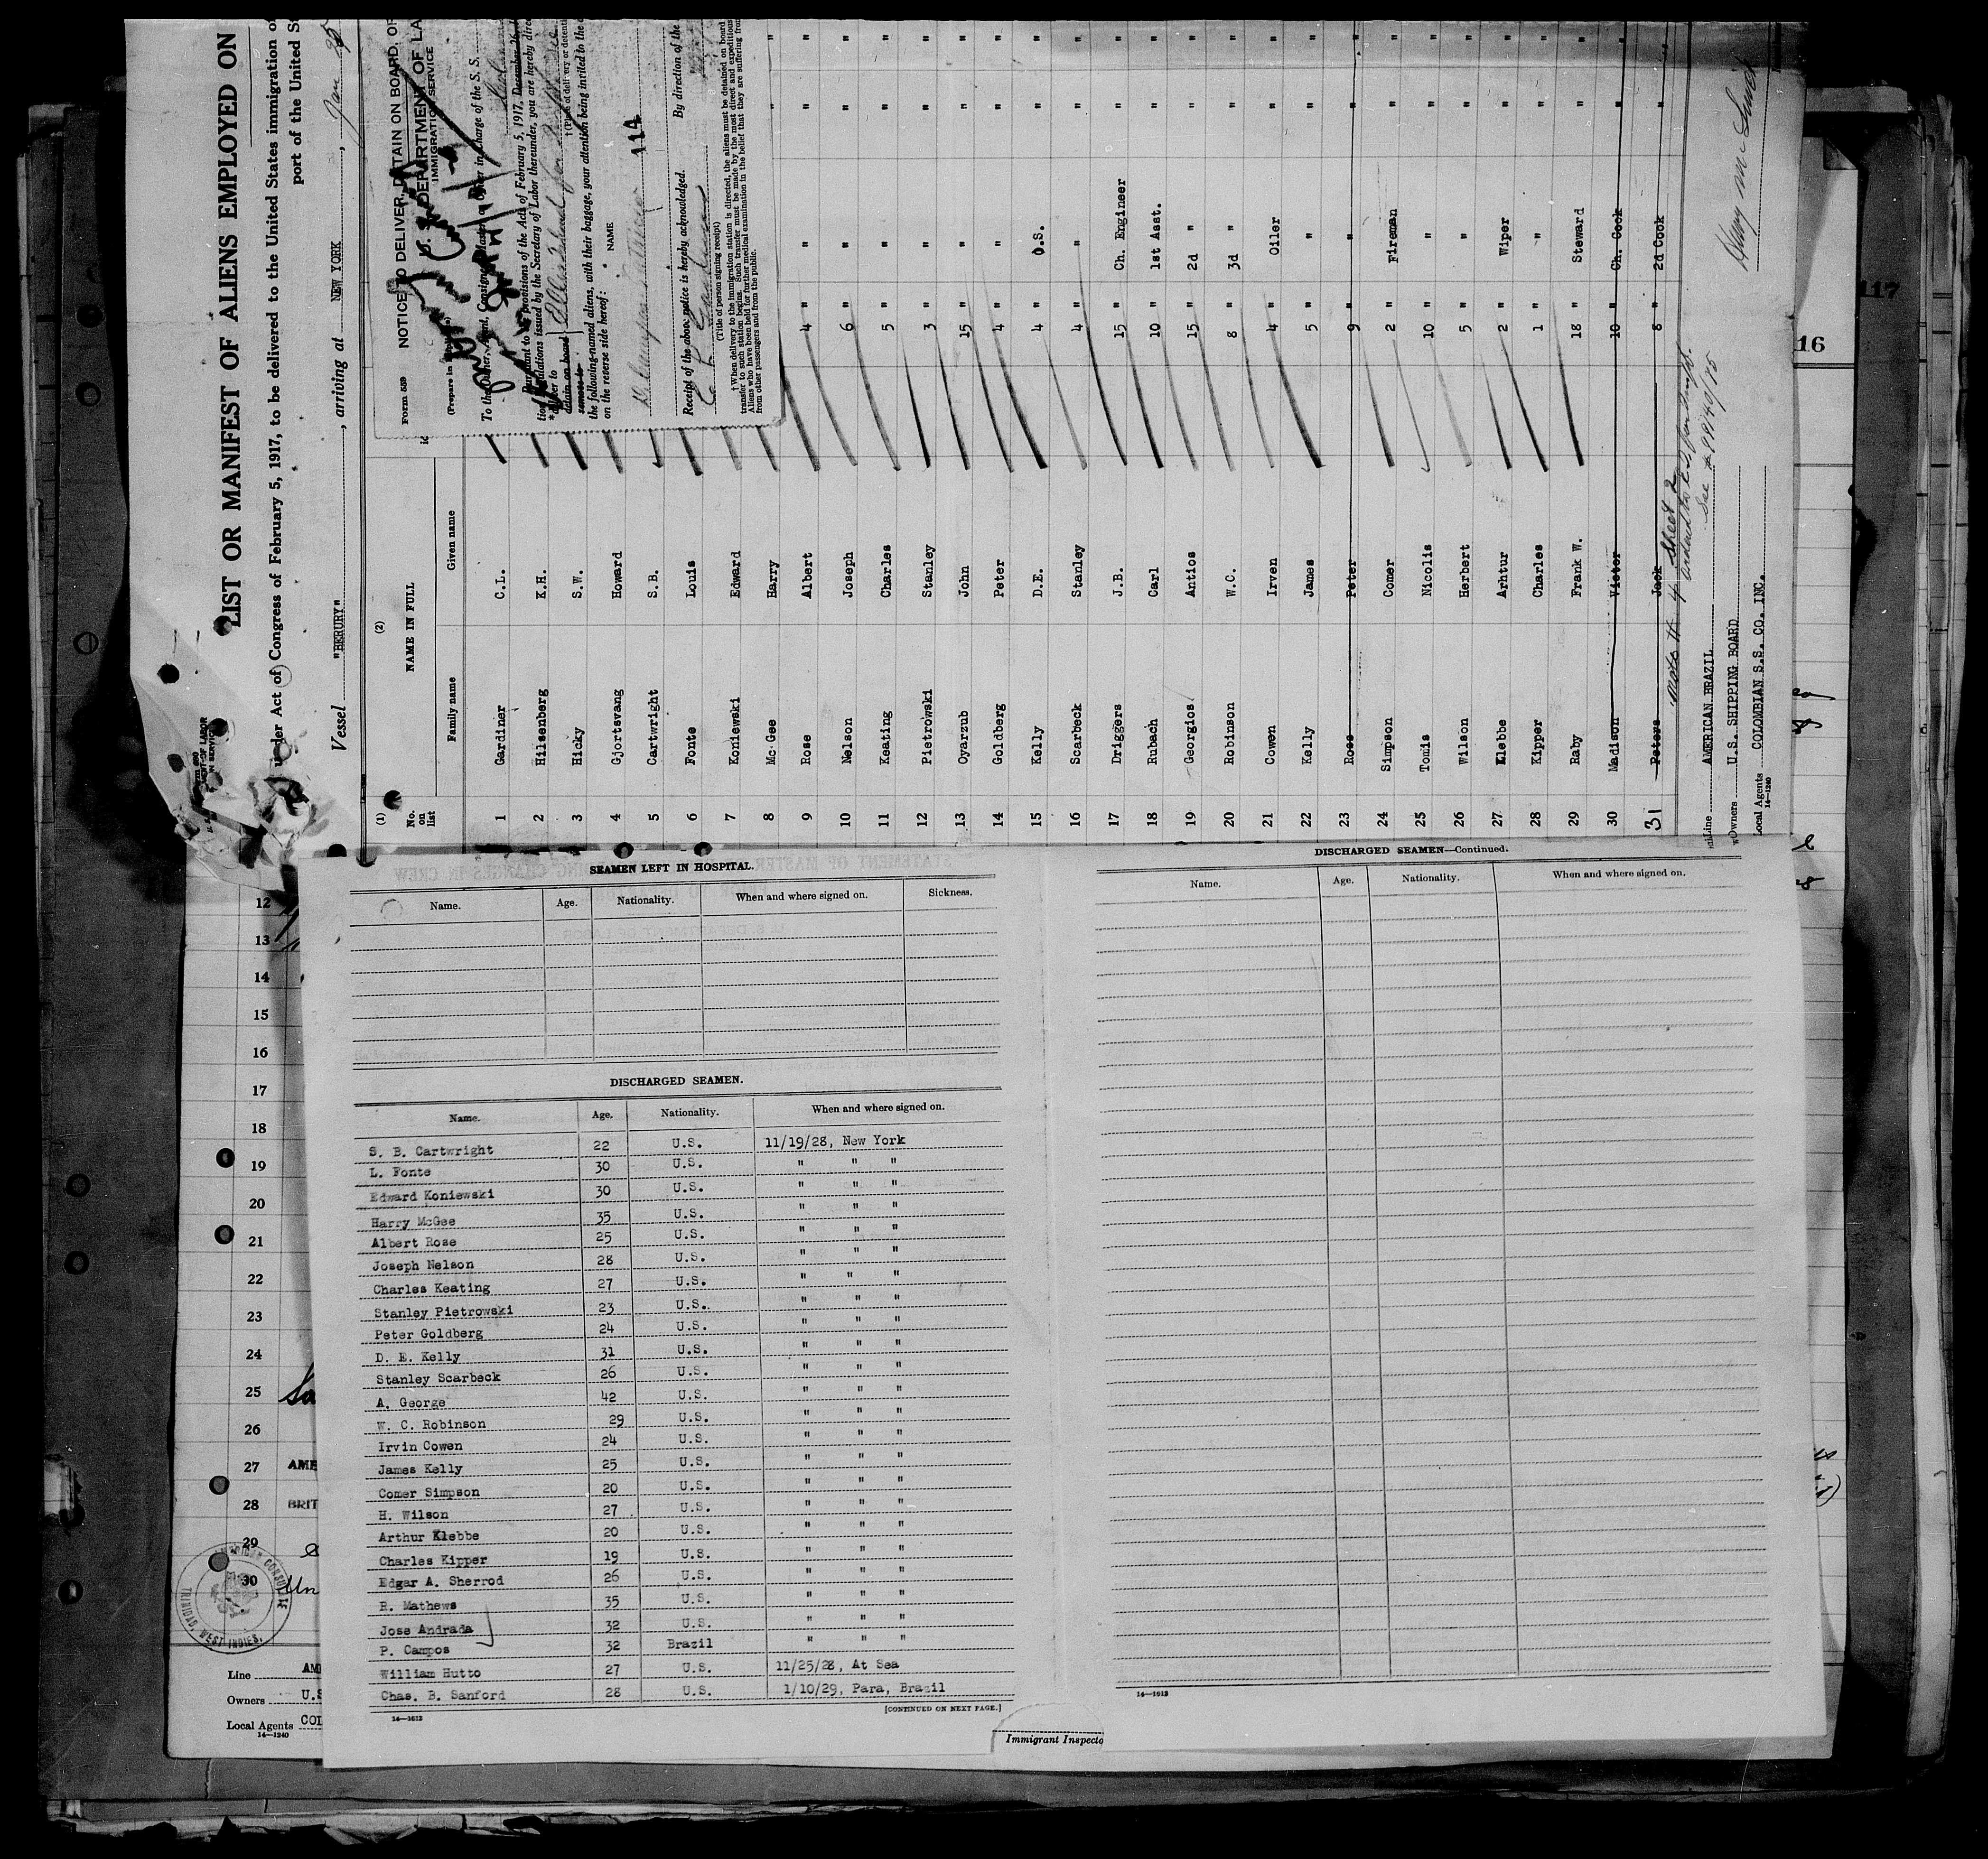 LIST OR MANIFEST OF ALIENS EMPLOYED ON
under Act of Congress of February 5, 1917, to be delivered to the United States immigration of
port of the United St
Vessel "BERURY", arriving at NEW YORK, Jan
(1) (2)
No. on list NAME IN FULL
Family name Given name
1 Gardiner C.L.
2 Hilsenberg K.H.
3 Hicky S.W.
4 Gjortsvang Howard
5 Cartwright S.B.
6 Fonte Louis
7 Koniewski Edward
8 Mc Gee Harry
9 Rose Albert 4 " " " "
10 Nelson Joseph 6 " " " "
11 Keating Charles 5 " " " "
12 Pietrowski Stanley 3 " " " "
13 Oyarzub John 15 " " " "
14 Goldberg Peter 4 " " " "
15 Kelly D.E. 4 " O.S. " "
16 Scarbeck Stanley 4 " " " "
17 Driggers J.B. 15 " Ch. Engineer " "
18 Rubach Carl 10 " 1st Asst. " "
19 Georgios Antios 15 " 2d " " "
20 Robinson W.C. 8 " 3d " " "
21 Cowen Irven 4 " Oiler " "
22 Kelly James 5 " " " "
23 Rose Peter 9 " " " "
24 Simpson Comer 2 " Fireman " "
25 Tomis Nicolis 10 " " " "
26 Wilson Herbert 5 " " " "
27 Klebbe Arhtur 2 " Wiper " "
28 Kipper Charles 1 " " " "
29 Raby Frank W. 18 " Steward " "
30 Madison Victor 10 " Ch. Cook " "
31 Peters Jack 8 " 2d Cook " "
Sheet 2
See # 99140/75
Line AMERICAN BRAZIL
Owners U.S. SHIPPING BOARD
Local Agents COLOMBIAN S.S. CO. INC.
14—1240
Form 559 NOTICE TO DELIVER, DETAIN ON BOARD, OR
U. S. DEPARTMENT OF LA
IMMIGRATION SERVICE
(Prepare in
To the Owner, Agent, Consignee, Master or Officer in charge of the S. S.
Pursuant to the provisions of the Act of February 5, 1917, December 26
tion Regulations issued by the Secretary of Labor thereunder, you are hereby direc
* deliver to
detain on board
remove to
Ellis Island for
† (Place of delivery or detenti
the following-named aliens, with their baggage, your attention being invited to the
on the reverse side hereof:
NAME
114
Receipt of the above notice is hereby acknowledged. By direction of the
(Title of person signing receipt)
† When delivery to the immigration station is directed, the aliens must be detained on board
transfer to such station begins. Such transfer must be made by the most direct and expeditious
Aliens who have been held for further medical examination in the belief that they are suffering from
from other passengers and from the public.
117
16
SEAMEN LEFT IN HOSPITAL.
Name. Age. Nationality. When and where signed on. Sickness.
DISCHARGED SEAMEN.
Name. Age. Nationality. When and where signed on.
S. B. Cartwright 22 U.S. 11/19/28, New York
L. Fonte 30 U.S. " " "
Edward Koniewski 30 U.S. " " "
Harry McGee 35 U.S. " " "
Albert Rose 25 U.S. " " "
Joseph Nelson 28 U.S. " " "
Charles Keating 27 U.S. " " "
Stanley Pietrowski 23 U.S. " " "
Peter Goldberg 24 U.S. " " "
D. E. Kelly 31 U.S. " " "
Stanley Scarbeck 26 U.S. " " "
A. George 42 U.S. " " "
W. C. Robinson 29 U.S. " " "
Irvin Cowen 24 U.S. " " "
James Kelly 25 U.S. " " "
Comer Simpson 20 U.S. " " "
H. Wilson 27 U.S. " " "
Arthur Klebbe 20 U.S. " " "
Charles Kipper 19 U.S. " " "
Edgar A. Sherrod 26 U.S. " " "
R. Mathews 35 U.S. " " "
Jose Andrada 32 U.S. " " "
P. Campos 32 Brazil " " "
William Hutto 27 U.S. 11/25/28, At Sea
Chas. B. Sanford 28 U.S. 1/10/29, Para, Brazil
14—1613
[CONTINUED ON NEXT PAGE.]
Immigrant Inspecto
DISCHARGED SEAMEN—Continued.
Name. Age. Nationality. When and where signed on.
14—1613
12
13
14
15
16
17
18
19
20
21
22
23
24
25
26
27 AME
28 BRIT
29
30 Un
AMERICAN CONSULATE
TRINIDAD, WEST INDIES.
Line AM
Owners U.S
Local Agents COL
14—1240